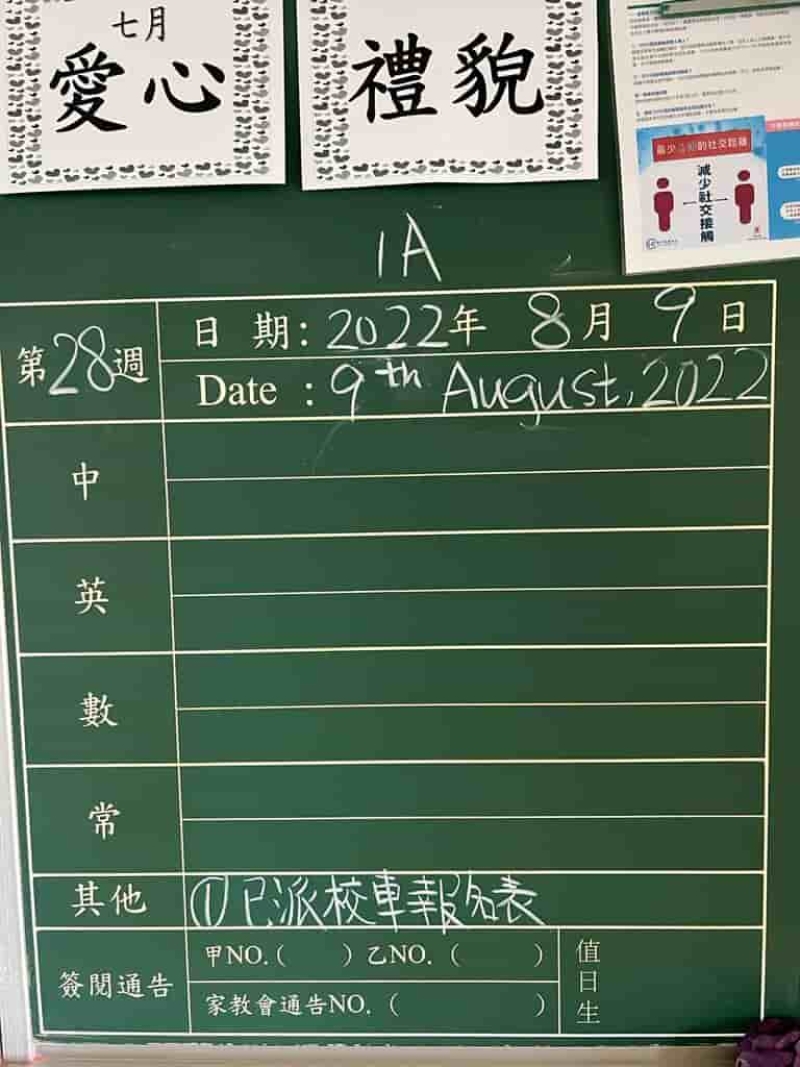 七月
愛心
禮貌
減少社交接觸
1A
第28週
日 期：2022年 8月 9日
Date : 9th August, 2022
中
英
數
常
其他 ①已派校車報名表
簽閱通告
甲NO.( ) 乙NO. ( )
家教會通告NO. ( )
值日生